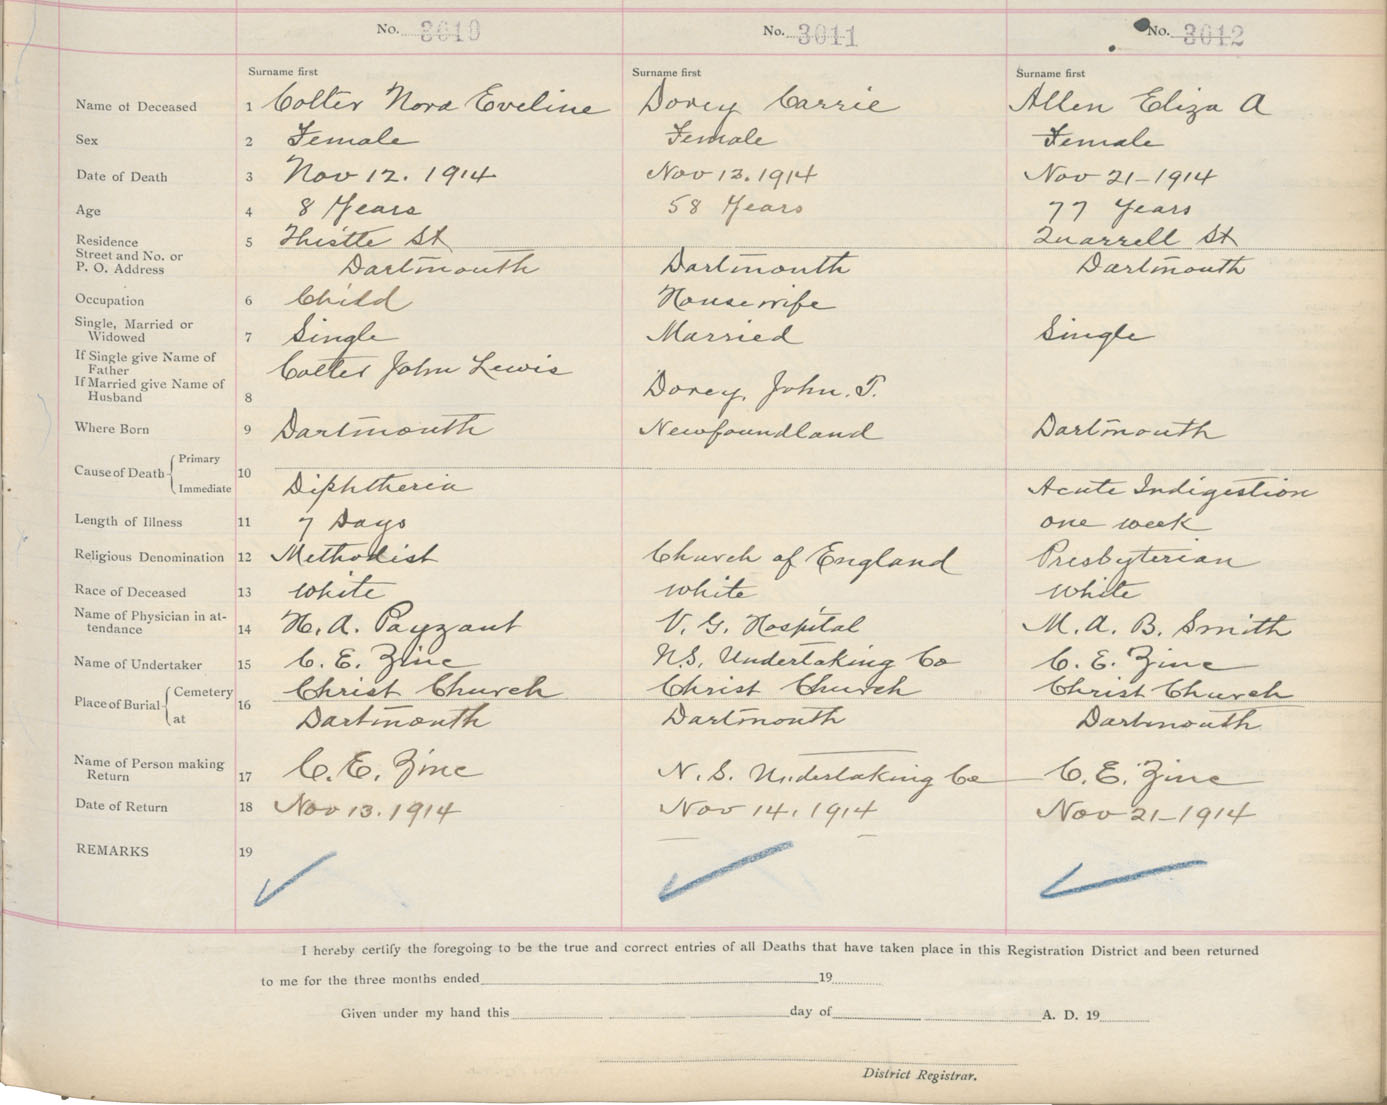 No. 3010 No. 3011 No. 3012
Surname first Surname first Surname first
Name of Deceased 1 Colter Nora Eveline Dorey Carrie Allen Eliza A
Sex 2 Female Female Female
Date of Death 3 Nov 12. 1914 Nov 13. 1914 Nov 21-1914
Age 4 8 Years 58 Years 77 Years
Residence 5 Thistle St Quarrell St
Street and No. or
P. O. Address Dartmouth Dartmouth Dartmouth
Occupation 6 Child Housewife
Single, Married or
Widowed 7 Single Married Single
If Single give Name of
Father Colter John Lewis
If Married give Name of
Husband 8 Dorey, John. T.
Where Born 9 Dartmouth Newfoundland Dartmouth
Cause of Death Primary 10
Immediate Diphtheria Acute Indigestion
Length of Illness 11 7 Days one week
Religious Denomination 12 Methodist Church of England Presbyterian
Race of Deceased 13 white white white
Name of Physician in at-
tendance 14 H. A. Payzant V. G. Hospital M. A. B. Smith
Name of Undertaker 15 C. E. Zinc N.S. Undertaking Co C. E. Zinc
Place of Burial Cemetery 16 Christ Church Christ Church Christ Church
at Dartmouth Dartmouth Dartmouth
Name of Person making
Return 17 C. E. Zinc N. S. Undertaking Co C. E. Zinc
Date of Return 18 Nov 13. 1914 Nov 14, 1914 Nov 21-1914
REMARKS 19
I hereby certify the foregoing to be the true and correct entries of all Deaths that have taken place in this Registration District and been returned
to me for the three months ended 19
Given under my hand this day of A. D. 19
District Registrar.